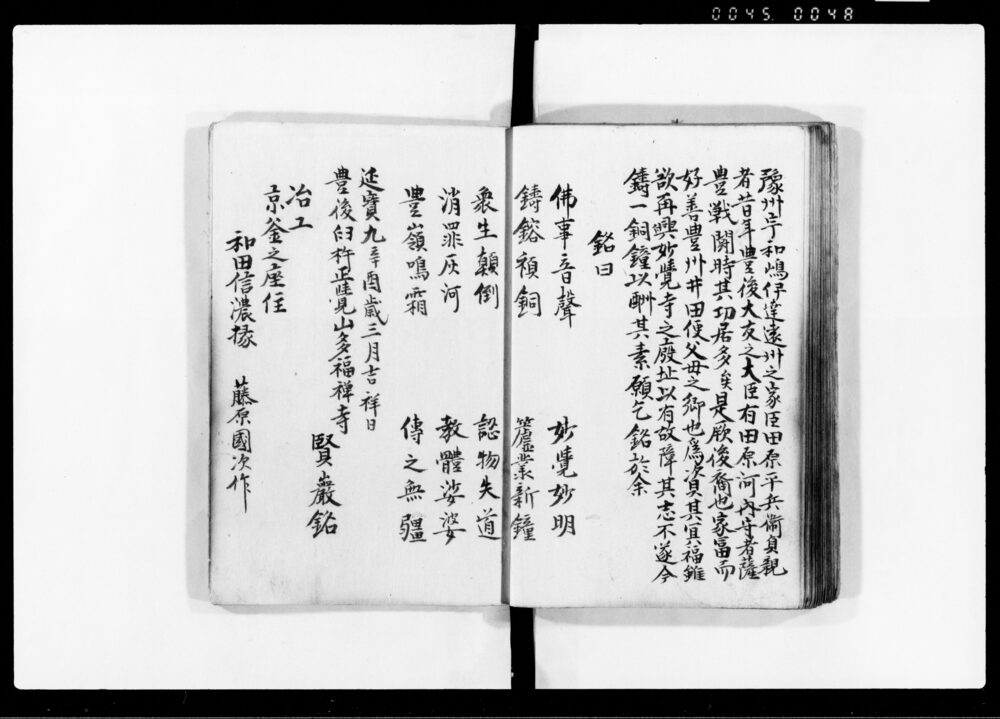 0045. 0048
豫州于和嶋伊達遠州之家臣田原平兵衞貞親
者昔年豊後大友之大臣有田原河内守者薩
豊戰鬪時其功居多矣是厥後裔也家富而
好善豊州井田便父母之鄉也爲資其冥福雖
欲再興妙覺寺之廢址以有故障其志不遂今
鑄一銅鐘以酬其素願乞銘於余
銘曰
佛事音聲 妙覺妙明
鑄鎔禎銅 簴業新鐘
衆生顛倒 認物失道
消罪灰河 教體娑婆
豊嶺鳴霜 傳之無疆
延寶九辛酉歳三月吉祥日
豊後臼杵正覺山多福禅寺
賢巖銘
冶工
京釜之座住
和田信濃掾 藤原國次作